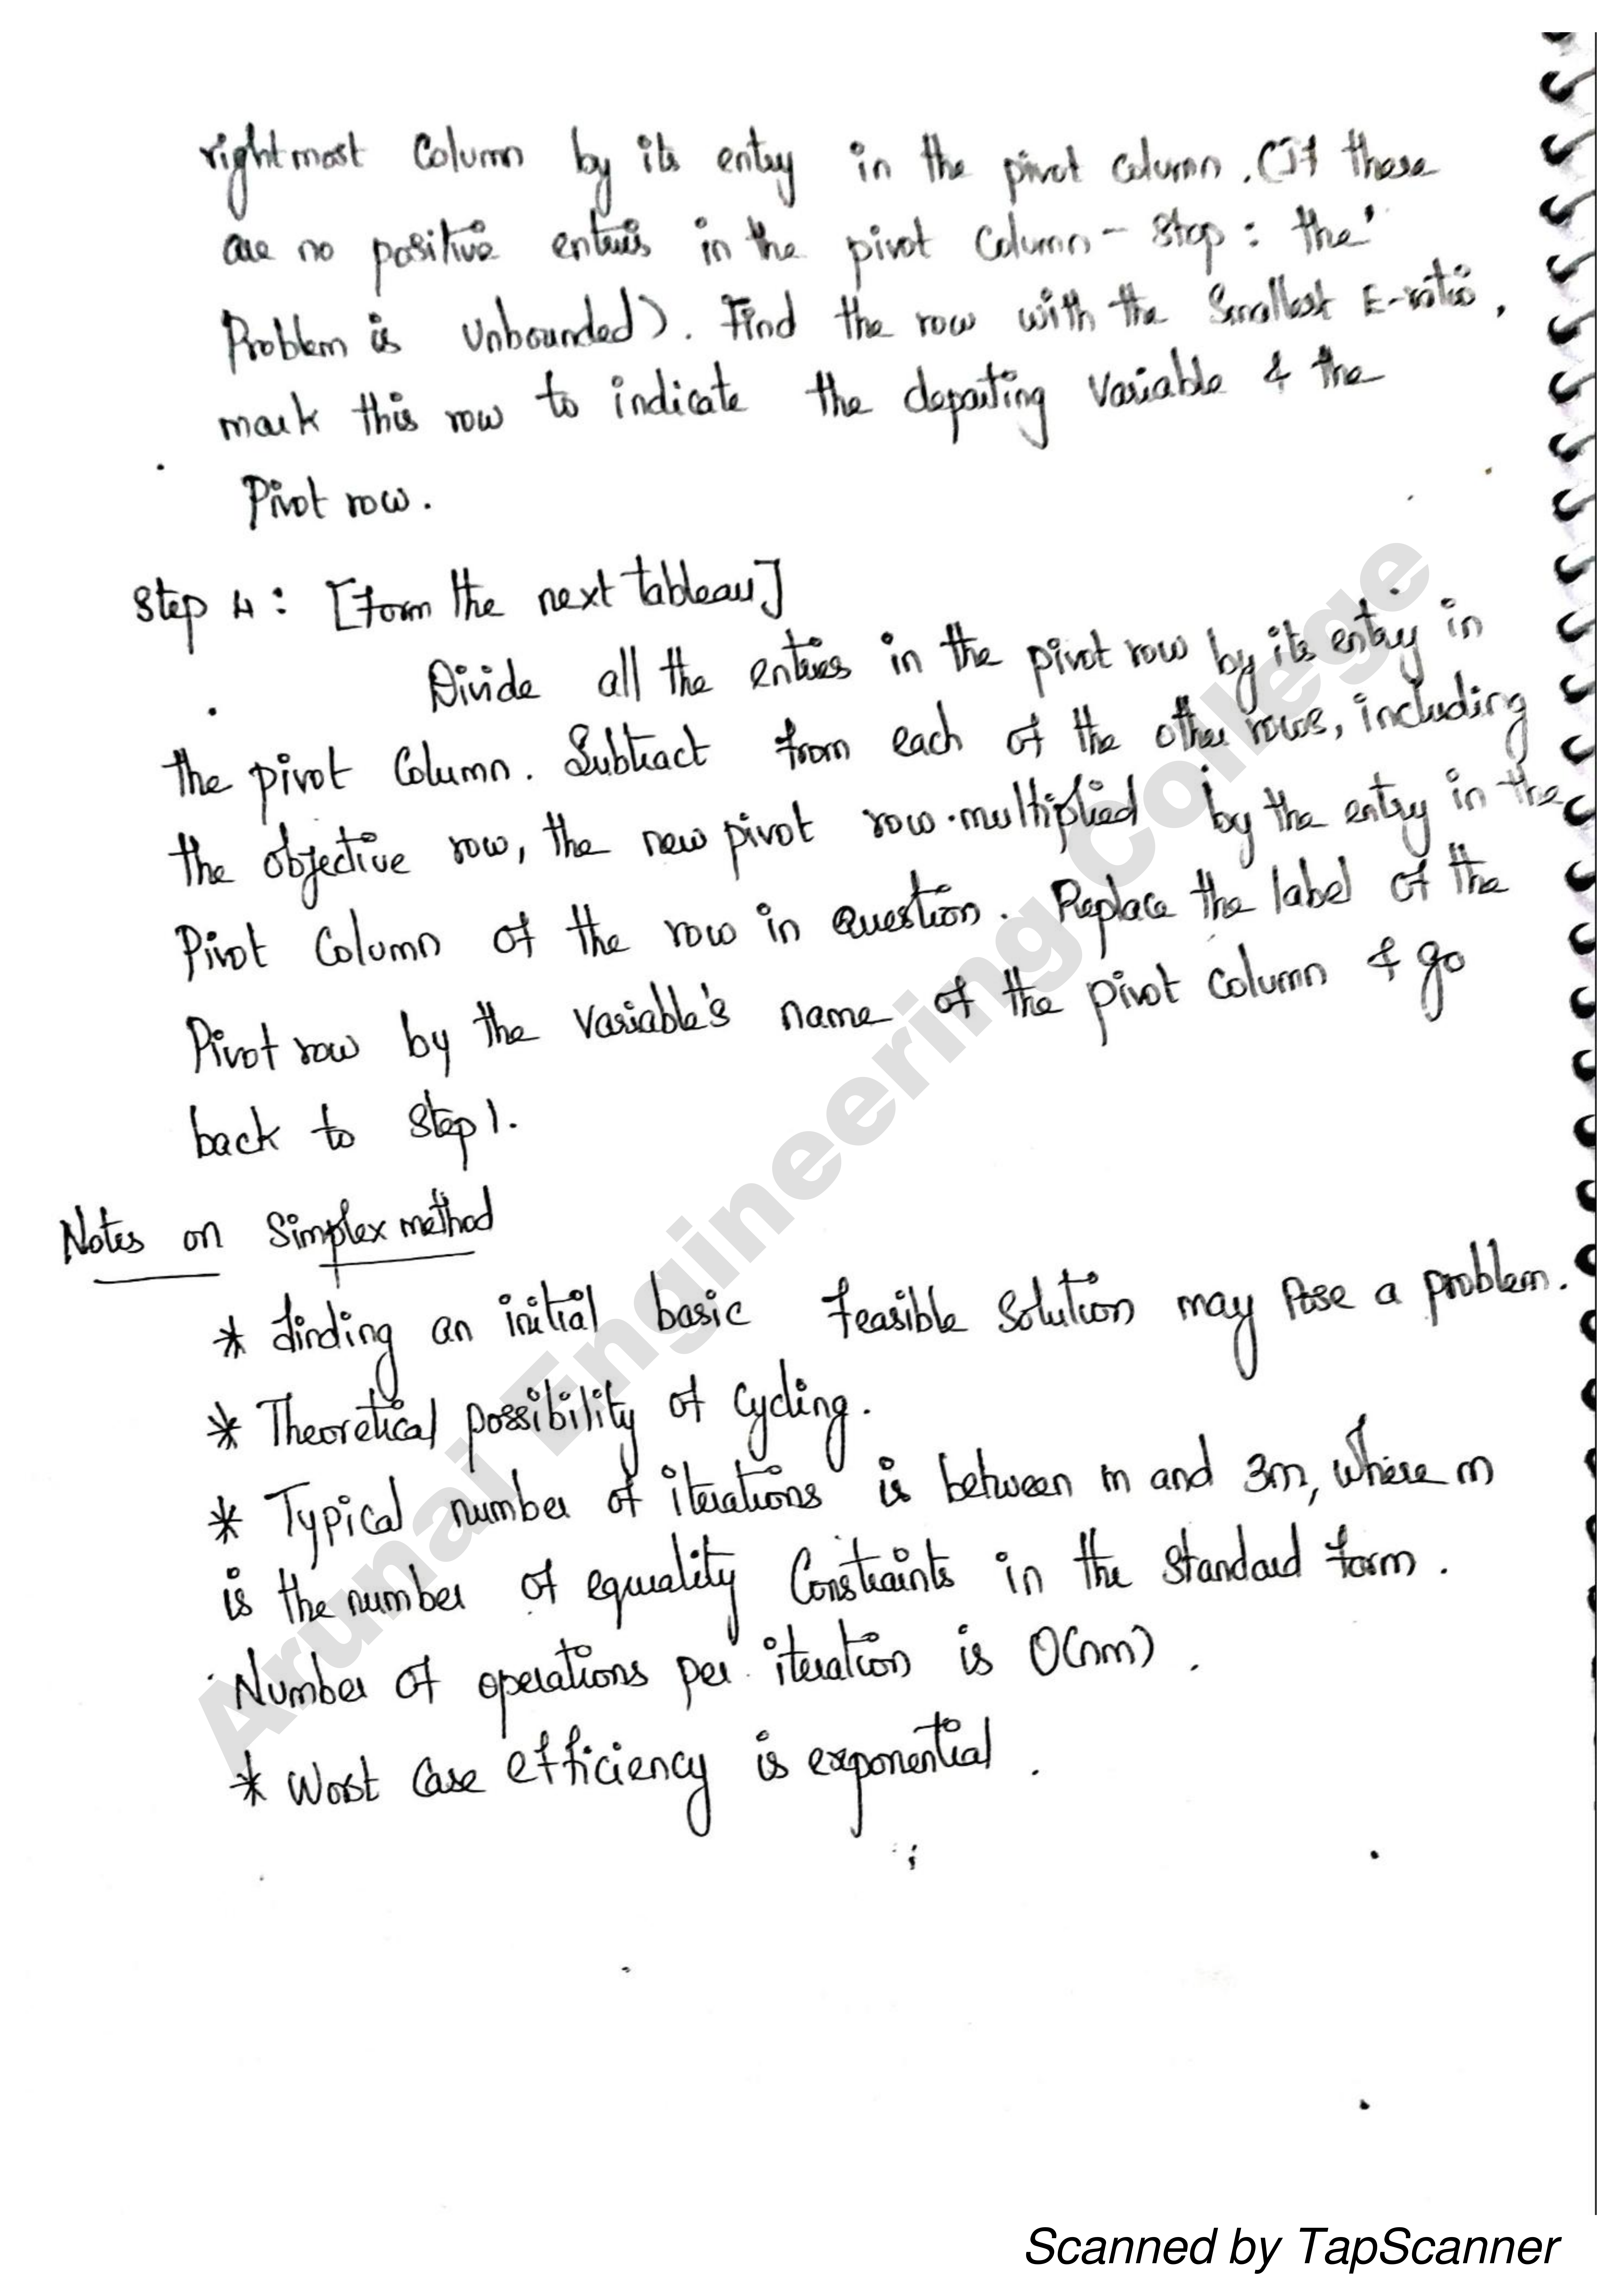 rightmost Column by its entry in the pivot column. (If these
are no positive entries in the pivot Column - Stop : the
Problem is Unbounded). Find the row with the Smallest E-ratio,
mark this row to indicate the departing Variable & the
Pivot row.
Step 4 : [Form the next tableau]
Divide all the entries in the pivot row by its entry in
the pivot Column. Subtract from each of the other rows, including
the objective row, the new pivot row.multiplied by the entry in the
Pivot Column of the row in question. Replace the label of the
Pivot row by the Variable's name of the pivot column & go
back to Step 1.
Notes on Simplex method
* finding an initial basic feasible Solution may Pose a problem.
* Theoretical possibility of Cycling.
* Typical number of iterations is between m and 3m, where m
is the number of equality Constraints in the standard form.
Number of operations per iteration is O(nm).
* Worst Case efficiency is exponential.
Arunai Engineering College
Scanned by TapScanner